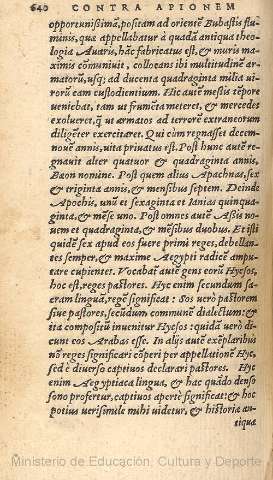 640 CONTRA APIONEM
opportunißimā, positam ad orientē Bubastis flu-
minis, quæ appellabatur à quadā antiqua theo-
logia Auaris, hāc fabricatus est, & muris ma-
ximis cōmuniuit, collocans ibi multitudinē ar-
matorū, usq; ad ducenta quadraginta milia ui-
rorū eam custodientium. Hic autē meßis tēpore
ueniebat, tam ut frumēta meteret, & mercedes
exolueret, q̃ ut armatos ad terrorē extraneorum
diligēter exercitaret. Qui cùm regnasset decem-
nouē annis, uita priuatus est. Post hunc autē re-
gnauit alter quatuor & quadraginta annis,
Bæon nomine. Post quem alius Apachnas, sex
& triginta annis, & mensibus septem. Deinde
Apochis, unū et sexaginta et Ianias quinqua-
ginta, & mēse uno. Post omnes autē Aßis no-
uem et quadraginta, & mēsibus duobus. Et isti
quidē sex apud eos fuere primi reges, debellan-
tes semper, & maximè Aegypti radicē ampu-
tare cupientes. Vocabāt autē gens eorū Hycsos,
hoc est, reges pastores. Hyc enim secundum sa-
cram linguā, regē significat: Sos uerò pastorem
siue pastores, secūdum communē dialectum: &
ita compositū inuenitur Hycsos: quidā uerò di-
cunt eos Arabas esse. In alijs autē exēplaribus
nō reges significari cōperi per appellationē Hyc,
sed è diuerso captiuos declarari pastores. Hyc
enim Aegyptiaca lingua, & hac quādo denso
sono profertur, captiuos apertè significat: & hoc
potius uerisimile mihi uidetur, & historiæ an-
tiqua
Ministerio de Educación, Cultura y Deporte